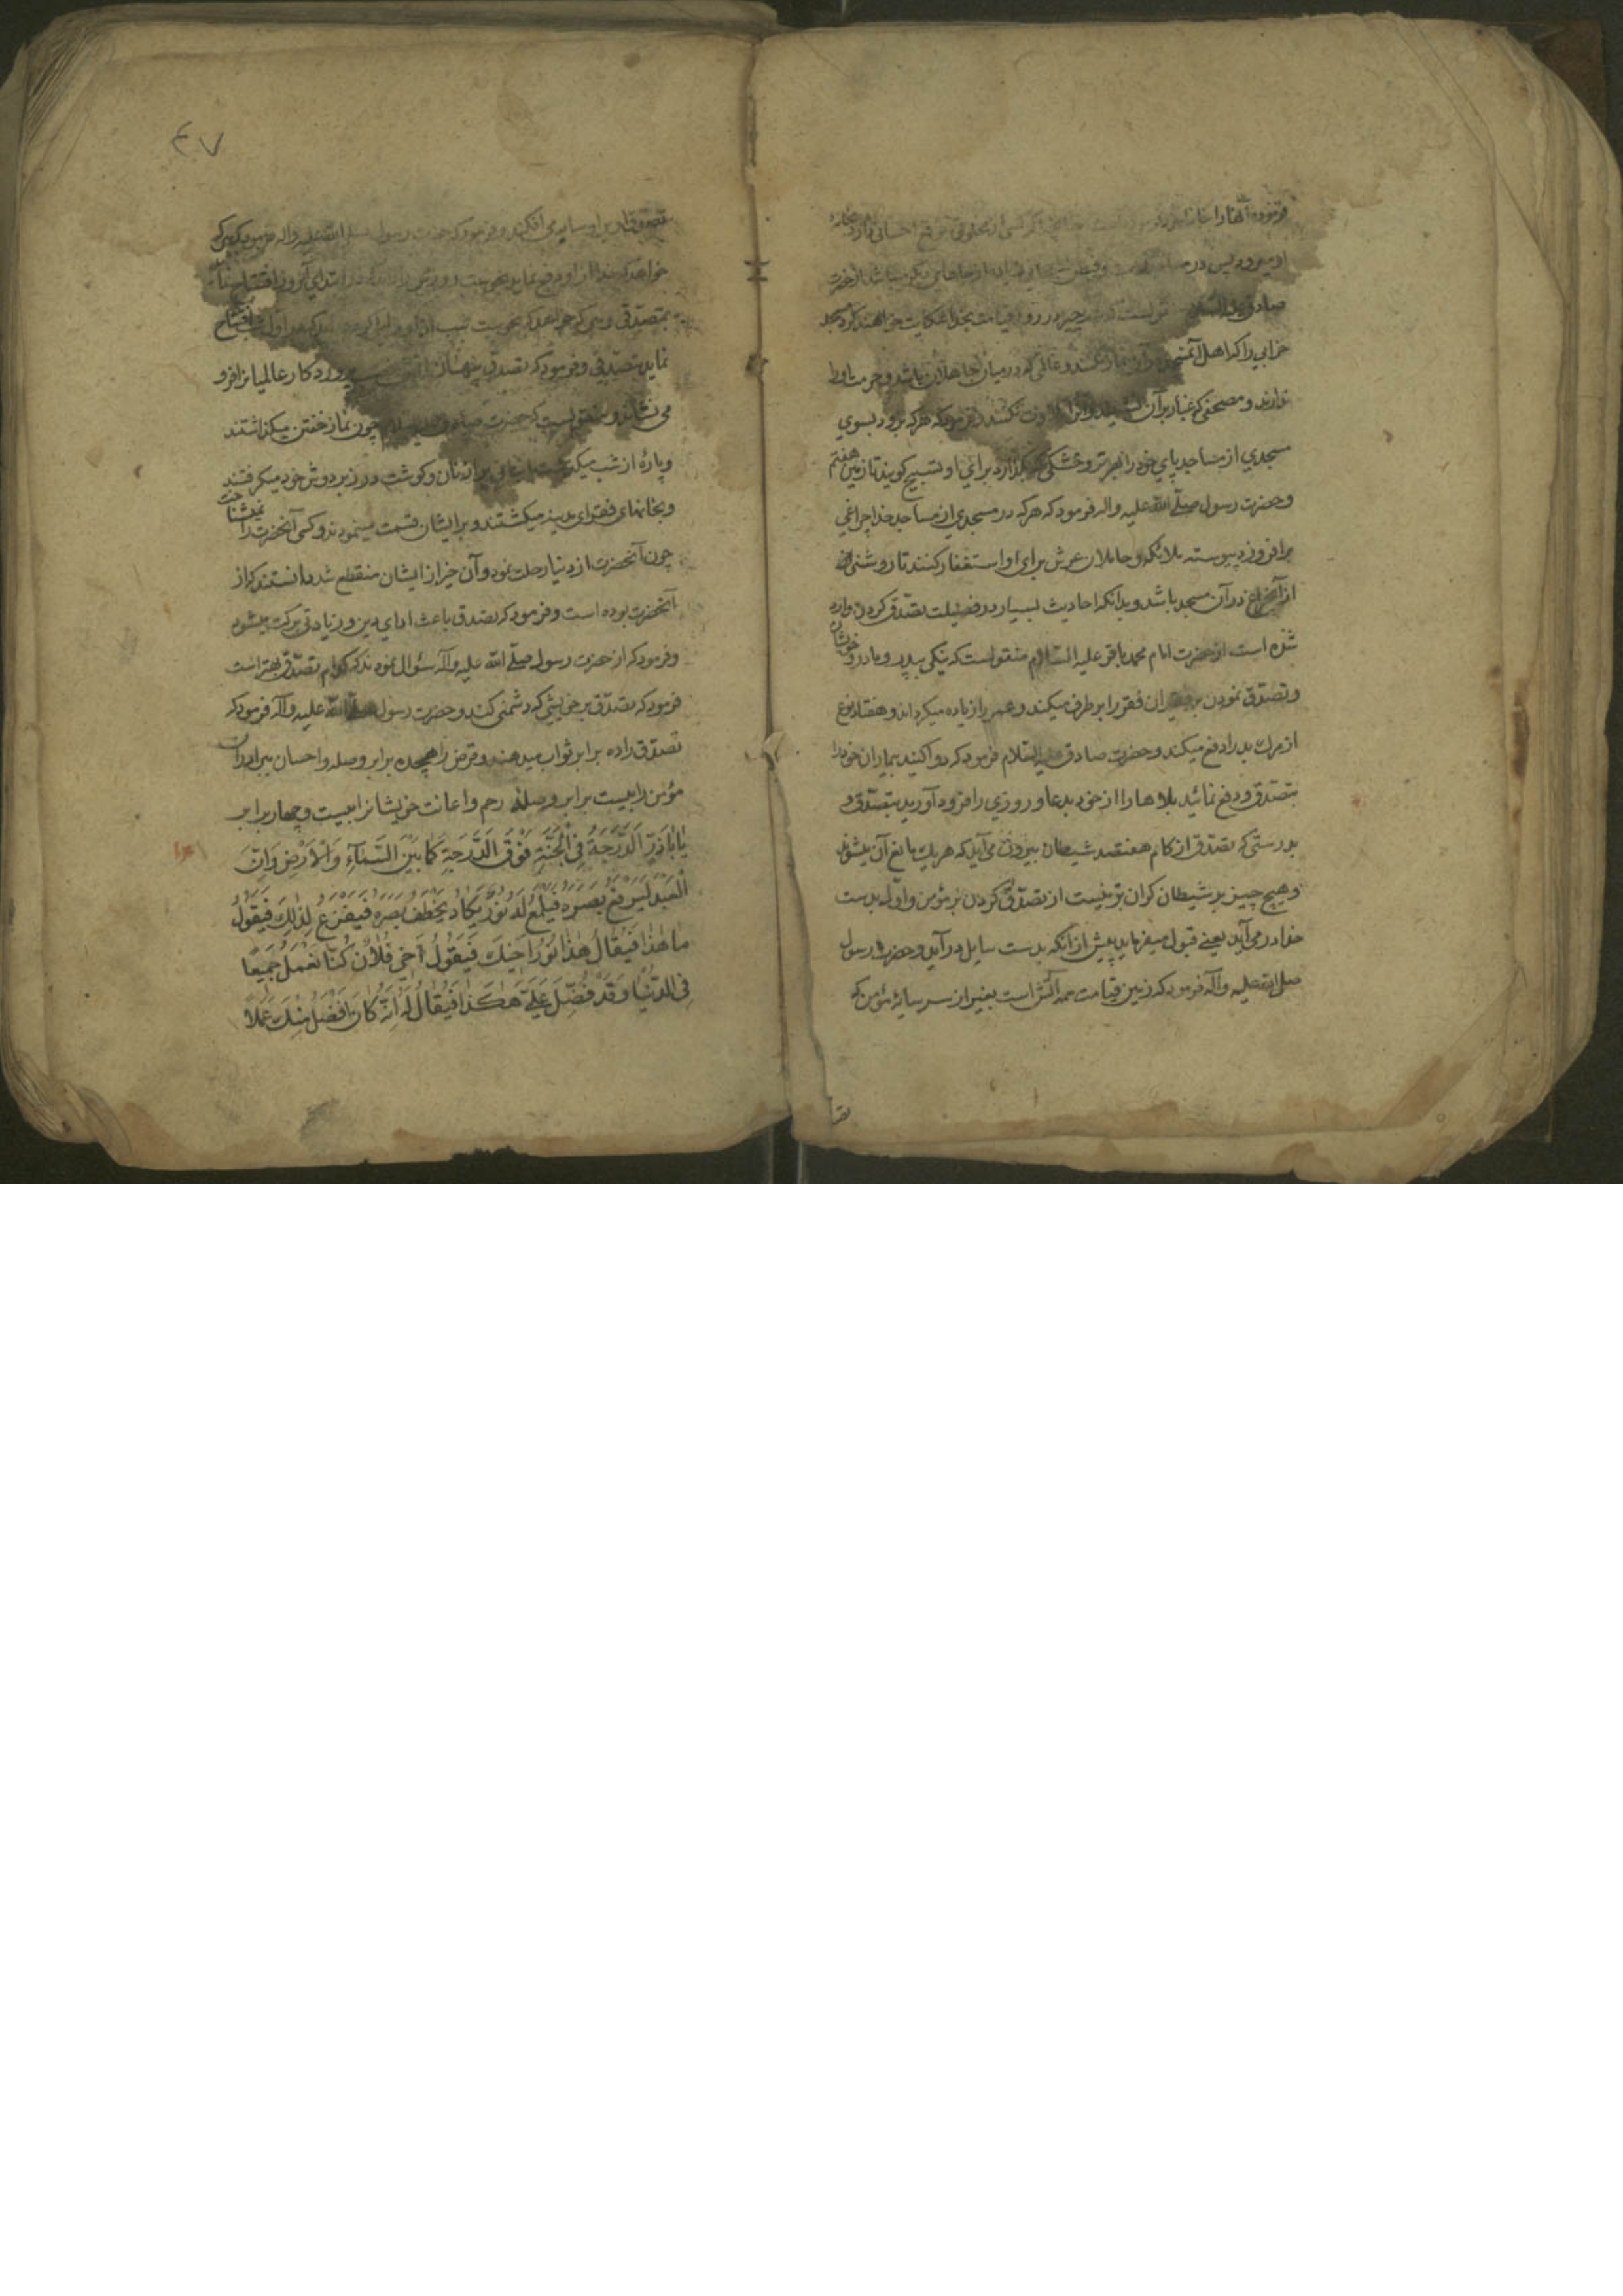 فرموده آنها را
از میرود پس در
صادق علیه السلام در روز قیامت بخدا شکایت خواهند کرد مسجد
خرابی را که اهل آن و عالمی که در میان جاهلان باشد و حرمت او را
ندارند و مصحفی که غبار بر آن نکنند و فرمود که هر که برود بسوی
مسجدی از مساجد پای خود را بر هر تر و خشکی که بگذارد برای او تسبیح گویند تا زمین هفتم
و حضرت رسول صلّی الله علیه واله فرمود که هر که در مسجدی از مساجد خدا چراغی
برافروزد پیوسته ملائکه و حاملان عرش برای او استغفار کنند تا روشنی
از آنچراغ در آن مسجد باشد و بدانکه احادیث بسیار در فضیلت تصدّق کردن وارد
شده است از حضرت امام محمد باقر علیه السّلام منقولست که نیکی بپدر و مادر و خویشان
و تصدّق نمودن بر فقیران فقر را بر طرف میکند و عمر را زیاده میگرداند و هفتاد نوع
از مرک بد را دفع میکند و حضرت صادق علیه السّلام فرمود که دوا کنید بیماران خود را
بتصدّق و دفع نمائید بلاها را از خود بدعا و روزی را فرود آورید بتصدّق و
بدرستی که تصدّق از کام هفتصد شیطان بیرون می آید که هر یک مانع آن میشوند
و هیچ چیز بر شیطان گران تر نیست از تصدّق کردن بر مؤمن و اوّل بدست
خدا در می آید یعنی قبول میفرماید پیش از آنکه بدست سایل در آید و حضرت رسول
صلی الله علیه وآله فرمود که زمین قیامت همه آتش است بغیر از سر سایهٔ مؤمن که
٤٧
تصدّق او بر او سایه می افکند و فرمود که حضرت رسول صلی الله علیه واله فرمود که کسی که
خواهد که خدا از او دفع نماید نحوست روز را در ابتدای آنروز افتتاح نماید
بتصدّقی و کسی که خواهد که نحوست شب از او افتتاح
نماید بتصدّقی و فرمود که تصدّق پنهان پروردگار عالمیان را فرو
می نشاند و منقولست که حضرت صادق علیه السلام چون نماز خفتن میگذاشتند
و پارهٔ از شب میگذشت نان و گوشت و زر بر دوش خود میگرفتند
و بخانهای فقرای مدینه میگشتند و بر ایشان قسمت مینمودند و کسی آنحضرت را نمیشناخت
چون آنحضرت از دنیا رحلت نمود و آن خیر از ایشان منقطع شد دانستند که از
آنحضرت بوده است و فرمود که تصدق باعث ادای دین و زیادتی برکت میشود
و فرمود که از حضرت رسول صلّی الله علیه وآله سؤال نمودند که کدام تصدّق بهتر است
فرمود که تصدّق بر خویشی که دشمنی کند و حضرت رسول صلّی الله علیه وآله فرمود که
تصدّق را ده برابر ثواب میدهند و قرض را هیجده برابر و صله و احسان ببرادران
مؤمن را بیست برابر و صلهٔ رحم و اعانت خویشانرا بیست و چهار برابر
يٰا اَبٰاذَرٍّ اَلدَّرَجَةُ فِي الْجَنَّةِ فَوْقَ الدَّرَجَةِ كَمٰا بَيْنَ السَّمٰآءِ وَالْاَرْضِ وَاِنَّ
الْعَبْدَ لَيَرْفَعُ بَصَرَهُ فَيَلْمَعُ لَهُ نُورٌ يَكٰادُ يَخْطَفُ بَصَرَهُ فَيَفْزَعُ لِذٰلِكَ فَيَقُولُ
مٰا هٰذٰا فَيُقٰالُ هٰذٰا نُورُ اَخيكَ فَيَقُولُ اَخي فُلٰانٌ كُنّٰا نَعْمَلُ جَميعًا
فِي الدُّنْيٰا وَقَدْ فُضِّلَ عَلَيَّ هٰكَذٰا فَيُقٰالُ لَهُ اِنَّهُ كٰانَ اَفْضَلَ مِنْكَ عَمَلًا